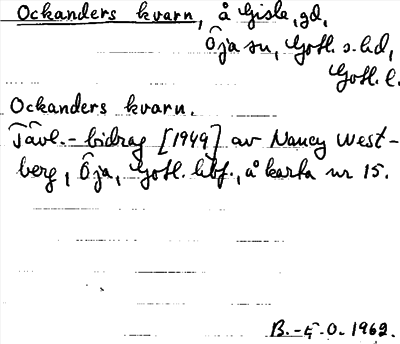 Ockanders kvarn, å Gisle, gd,
Öja sn, Gotl. s. hd,
Gotl. l.
Ockanders kvarn.
Tävl.-bidrag [1949] av Nancy West-
berg, Öja, Gotl. hbf., å karta nr 15.
B.-E. O. 1962.